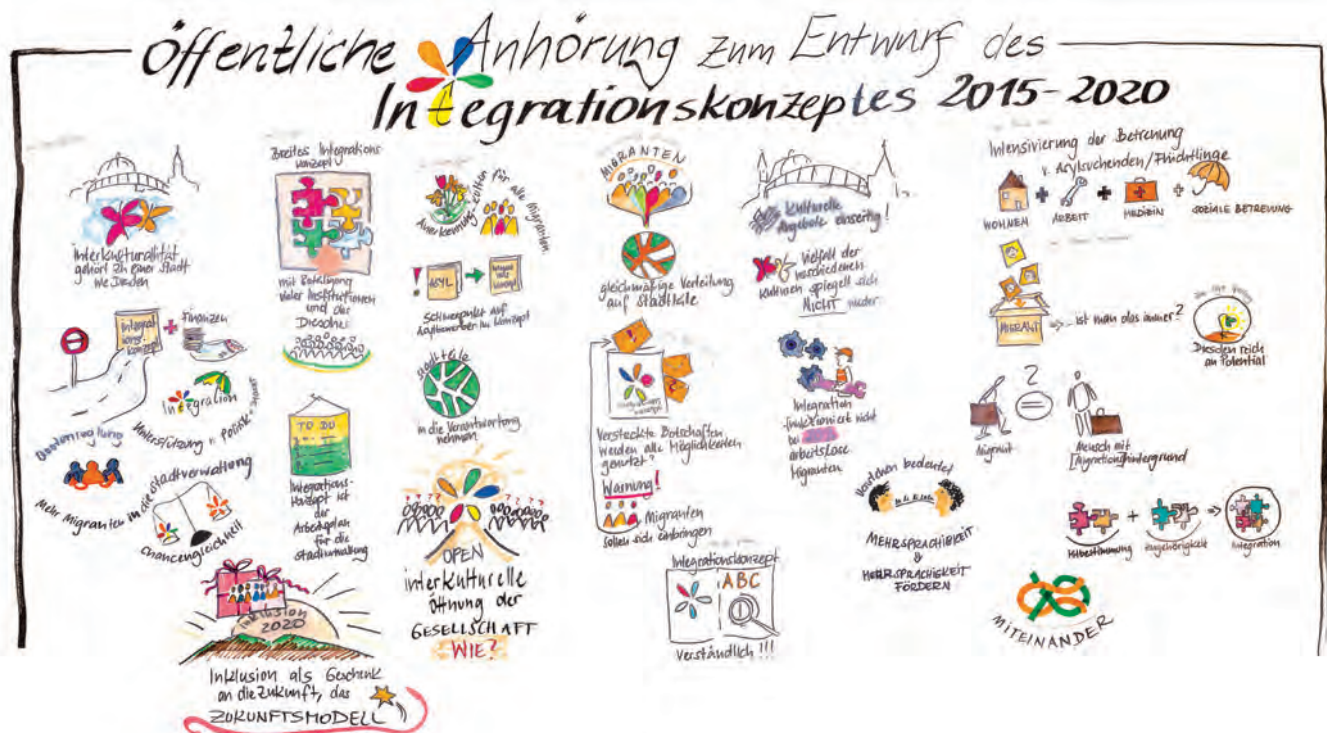 Öffentliche Anhörung zum Entwurf des
Integrationskonzeptes 2015-2020
Interkulturalität
gehört zu einer Stadt
wie Dresden
integrat
ions-
konzept
+ Finanzen
Integration
Unterstützung v. Politik + Stadt
Mehr Migranten in die Stadtverwaltung
Chancengleichheit
Inklusion
2020
Inklusion als Geschenk
an die Zukunft, das
ZUKUNFTSMODELL
Breites Integrations
konzept
mit Beteiligung
vieler Institutionen
und der
Dresdner
TO DU
Integrations-
konzept ist
der
Arbeitsplan
für die
Stadtverwaltung
Anerkennung zollen für alle Migranten
! ASYL
Schwerpunkt auf
Asylbewerber im Konzept
Stadtteile
in die Verantwortung
nehmen
????
????
OPEN
interkulturelle
Öffnung der
GESELLSCHAFT
WIE?
MIGRANTEN
gleichmäßige Verteilung
auf Stadtteile
!
Versteckte Botschaften
werden alle Möglichkeiten
genutzt?
Warnung!
Migranten
sollen sich einbringen
Integrationskonzept
ABC
Verständlich !!!
Kulturelle
Angebote einseitig!
Vielfalt der
verschiedenen
Kulturen spiegelt sich
NICHT wieder
Integration
funktioniert nicht
bei
arbeitslose
Migranten
Verstehen bedeutet
MEHRSPRACHIGKEIT
&
MEHRSPRACHIGKEIT
FÖRDERN
Intensivierung der Betreuung
v. Asylsuchenden/Flüchtlinge
WOHNEN + ARBEIT + MEDIZIN + SOZIALE BETREUUNG
MIGRANT
ist man das immer?
Dresden reich
an Potential
?
=
Migrant
Mensch mit
Migrationshintergrund
+
Zugehörigkeit
Integration
MITEINANDER